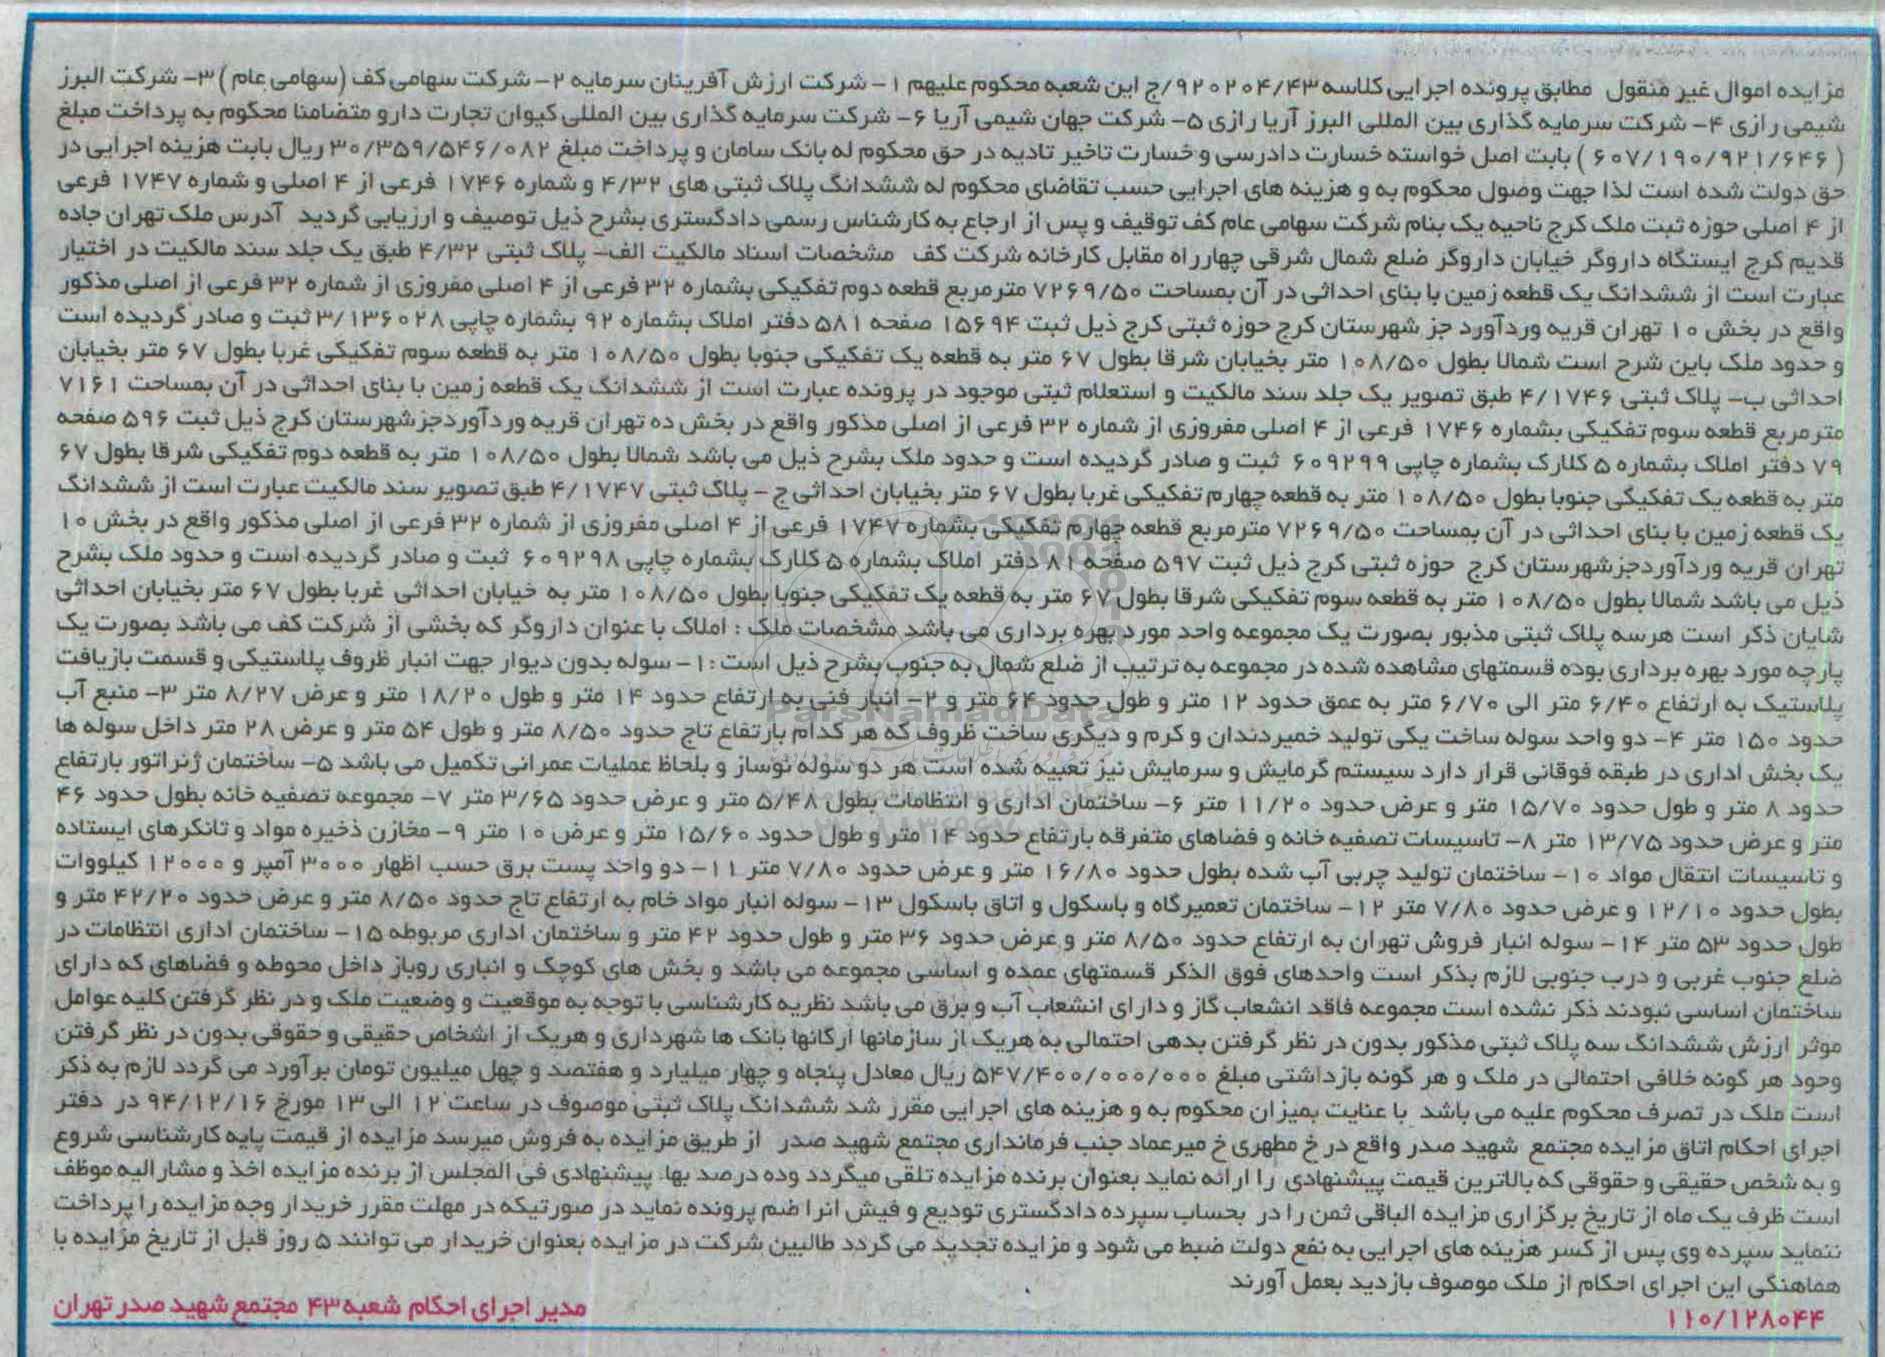 مزایده اموال غیر منقول مطابق پرونده اجرایی کلاسه ۹۲۰۲۰۴/۴۳/ج این شعبه محکوم علیهم ۱- شرکت ارزش آفرینان سرمایه ۲- شرکت سهامی کف (سهامی عام) ۳- شرکت البرز
شیمی رازی ۴- شرکت سرمایه گذاری بین المللی البرز آریا رازی ۵- شرکت جهان شیمی آریا ۶- شرکت سرمایه گذاری بین المللی کیوان تجارت دارو متضامنا محکوم به پرداخت مبلغ
(۶۰۷/۱۹۰/۹۲۱/۶۴۶) بابت اصل خواسته خسارت دادرسی و خسارت تاخیر تادیه در حق محکوم له بانک سامان و پرداخت مبلغ ۳۰/۳۵۹/۵۴۶/۰۸۲ ریال بابت هزینه اجرایی در
حق دولت شده است لذا جهت وصول محکوم به و هزینه های اجرایی حسب تقاضای محکوم له ششدانگ پلاک ثبتی های ۴/۳۲ و شماره ۱۷۴۶ فرعی از ۴ اصلی و شماره ۱۷۴۷ فرعی
از ۴ اصلی حوزه ثبت ملک کرج ناحیه یک بنام شرکت سهامی عام کف توقیف و پس از ارجاع به کارشناس رسمی دادگستری بشرح ذیل توصیف و ارزیابی گردید آدرس ملک تهران جاده
قدیم کرج ایستگاه داروگر خیابان داروگر ضلع شمال شرقی چهارراه مقابل کارخانه شرکت کف مشخصات اسناد مالکیت الف- پلاک ثبتی ۴/۳۲ طبق یک جلد سند مالکیت در اختیار
عبارت است از ششدانگ یک قطعه زمین با بنای احداثی در آن بمساحت ۷۲۶۹/۵۰ مترمربع قطعه دوم تفکیکی بشماره ۳۲ فرعی از ۴ اصلی مفروزی از شماره ۳۲ فرعی از اصلی مذکور
واقع در بخش ۱۰ تهران قریه وردآورد جز شهرستان کرج حوزه ثبتی کرج ذیل ثبت ۱۵۶۹۴ صفحه ۵۸۱ دفتر املاک بشماره ۹۲ بشماره چاپی ۳/۱۳۶۰۲۸ ثبت و صادر گردیده است
و حدود ملک باین شرح است شمالا بطول ۱۰۸/۵۰ متر بخیابان شرقا بطول ۶۷ متر به قطعه یک تفکیکی جنوبا بطول ۱۰۸/۵۰ متر به قطعه سوم تفکیکی غربا بطول ۶۷ متر بخیابان
احداثی ب- پلاک ثبتی ۴/۱۷۴۶ طبق تصویر یک جلد سند مالکیت و استعلام ثبتی موجود در پرونده عبارت است از ششدانگ یک قطعه زمین با بنای احداثی در آن بمساحت ۷۱۶۱
مترمربع قطعه سوم تفکیکی بشماره ۱۷۴۶ فرعی از ۴ اصلی مفروزی از شماره ۳۲ فرعی از اصلی مذکور واقع در بخش ده تهران قریه وردآوردجزشهرستان کرج ذیل ثبت ۵۹۶ صفحه
۷۹ دفتر املاک بشماره ۵ کلارک بشماره چاپی ۶۰۹۲۹۹ ثبت و صادر گردیده است و حدود ملک بشرح ذیل می باشد شمالا بطول ۱۰۸/۵۰ متر به قطعه دوم تفکیکی شرقا بطول ۶۷
متر به قطعه یک تفکیکی جنوبا بطول ۱۰۸/۵۰ متر به قطعه چهارم تفکیکی غربا بطول ۶۷ متر بخیابان احداثی ج - پلاک ثبتی ۴/۱۷۴۷ طبق تصویر سند مالکیت عبارت است از ششدانگ
یک قطعه زمین با بنای احداثی در آن بمساحت ۷۲۶۹/۵۰ مترمربع قطعه چهارم تفکیکی بشماره ۱۷۴۷ فرعی از ۴ اصلی مفروزی از شماره ۳۲ فرعی از اصلی مذکور واقع در بخش ۱۰
تهران قریه وردآوردجزشهرستان کرج حوزه ثبتی کرج ذیل ثبت ۵۹۷ صفحه ۸۱ دفتر املاک بشماره ۵ کلارک بشماره چاپی ۶۰۹۲۹۸ ثبت و صادر گردیده است و حدود ملک بشرح
ذیل می باشد شمالا بطول ۱۰۸/۵۰ متر به قطعه سوم تفکیکی شرقا بطول ۶۷ متر به قطعه یک تفکیکی جنوبا بطول ۱۰۸/۵۰ متر به خیابان احداثی غربا بطول ۶۷ متر بخیابان احداثی
شایان ذکر است هرسه پلاک ثبتی مذبور بصورت یک مجموعه واحد مورد بهره برداری می باشد مشخصات ملک : املاک با عنوان داروگر که بخشی از شرکت کف می باشد بصورت یک
پارچه مورد بهره برداری بوده قسمتهای مشاهده شده در مجموعه به ترتیب از ضلع شمال به جنوب بشرح ذیل است : ۱- سوله بدون دیوار جهت انبار ظروف پلاستیکی و قسمت بازیافت
پلاستیک به ارتفاع ۶/۴۰ متر الی ۶/۷۰ متر به عمق حدود ۱۲ متر و طول حدود ۶۴ متر و ۲- انبار فنی به ارتفاع حدود ۱۴ متر و طول ۱۸/۲۰ متر و عرض ۸/۲۷ متر ۳- منبع آب
حدود ۱۵۰ متر ۴- دو واحد سوله ساخت یکی تولید خمیردندان و کرم و دیگری ساخت ظروف که هر کدام بارتفاع تاج حدود ۸/۵۰ متر و طول ۵۴ متر و عرض ۲۸ متر داخل سوله ها
یک بخش اداری در طبقه فوقانی قرار دارد سیستم گرمایش و سرمایش نیز تعبیه شده است هر دو سوله نوساز و بلحاظ عملیات عمرانی تکمیل می باشد ۵- ساختمان ژنراتور بارتفاع
حدود ۸ متر و طول حدود ۱۵/۷۰ متر و عرض حدود ۱۱/۲۰ متر ۶- ساختمان اداری و انتظامات بطول ۵/۴۸ متر و عرض حدود ۳/۶۵ متر ۷- مجموعه تصفیه خانه بطول حدود ۴۶
متر و عرض حدود ۱۳/۷۵ متر ۸- تاسیسات تصفیه خانه و فضاهای متفرقه بارتفاع حدود ۱۴ متر و طول حدود ۱۵/۶۰ متر و عرض ۱۰ متر ۹- مخازن ذخیره مواد و تانکرهای ایستاده
و تاسیسات انتقال مواد ۱۰- ساختمان تولید چربی آب شده بطول حدود ۱۶/۸۰ متر و عرض حدود ۷/۸۰ متر ۱۱- دو واحد پست برق حسب اظهار ۳۰۰۰ آمپر و ۱۲۰۰۰ کیلووات
بطول حدود ۱۲/۱۰ و عرض حدود ۷/۸۰ متر ۱۲- ساختمان تعمیرگاه و باسکول و اتاق باسکول ۱۳- سوله انبار مواد خام به ارتفاع تاج حدود ۸/۵۰ متر و عرض حدود ۴۲/۲۰ متر و
طول حدود ۵۳ متر ۱۴- سوله انبار فروش تهران به ارتفاع حدود ۸/۵۰ متر و عرض حدود ۳۶ متر و طول حدود ۴۲ متر و ساختمان اداری مربوطه ۱۵- ساختمان اداری انتظامات در
ضلع جنوب غربی و درب جنوبی لازم بذکر است واحدهای فوق الذکر قسمتهای عمده و اساسی مجموعه می باشد و بخش های کوچک و انباری روباز داخل محوطه و فضاهای که دارای
ساختمان اساسی نبودند ذکر نشده است مجموعه فاقد انشعاب گاز و دارای انشعاب آب و برق می باشد نظریه کارشناسی با توجه به موقعیت و وضعیت ملک و در نظر گرفتن کلیه عوامل
موثر ارزش ششدانگ سه پلاک ثبتی مذکور بدون در نظر گرفتن بدهی احتمالی به هریک از سازمانها ارگانها بانک ها شهرداری و هریک از اشخاص حقیقی و حقوقی بدون در نظر گرفتن
وجود هر گونه خلافی احتمالی در ملک و هر گونه بازداشتی مبلغ ۵۴۷/۴۰۰/۰۰۰/۰۰۰ ریال معادل پنجاه و چهار میلیارد و هفتصد و چهل میلیون تومان برآورد می گردد لازم به ذکر
است ملک در تصرف محکوم علیه می باشد با عنایت بمیزان محکوم به و هزینه های اجرایی مقرر شد ششدانگ پلاک ثبتی موصوف در ساعت ۱۲ الی ۱۳ مورخ ۹۴/۱۲/۱۶ در دفتر
اجرای احکام اتاق مزایده مجتمع شهید صدر واقع در خ مطهری خ میرعماد جنب فرمانداری مجتمع شهید صدر از طریق مزایده به فروش میرسد مزایده از قیمت پایه کارشناسی شروع
و به شخص حقیقی و حقوقی که بالاترین قیمت پیشنهادی را ارائه نماید بعنوان برنده مزایده تلقی میگردد وده درصد بها پیشنهادی فی المجلس از برنده مزایده اخذ و مشارالیه موظف
است ظرف یک ماه از تاریخ برگزاری مزایده الباقی ثمن را در بحساب سپرده دادگستری تودیع و فیش انرا ضم پرونده نماید در صورتیکه در مهلت مقرر خریدار وجه مزایده را پرداخت
ننماید سپرده وی پس از کسر هزینه های اجرایی به نفع دولت ضبط می شود و مزایده تجدید می گردد طالبین شرکت در مزایده بعنوان خریدار می توانند ۵ روز قبل از تاریخ مزایده با
هماهنگی این اجرای احکام از ملک موصوف بازدید بعمل آورند
مدیر اجرای احکام شعبه ۴۳ مجتمع شهید صدر تهران
۱۱۰/۱۲۸۰۴۴
ParsNamadData